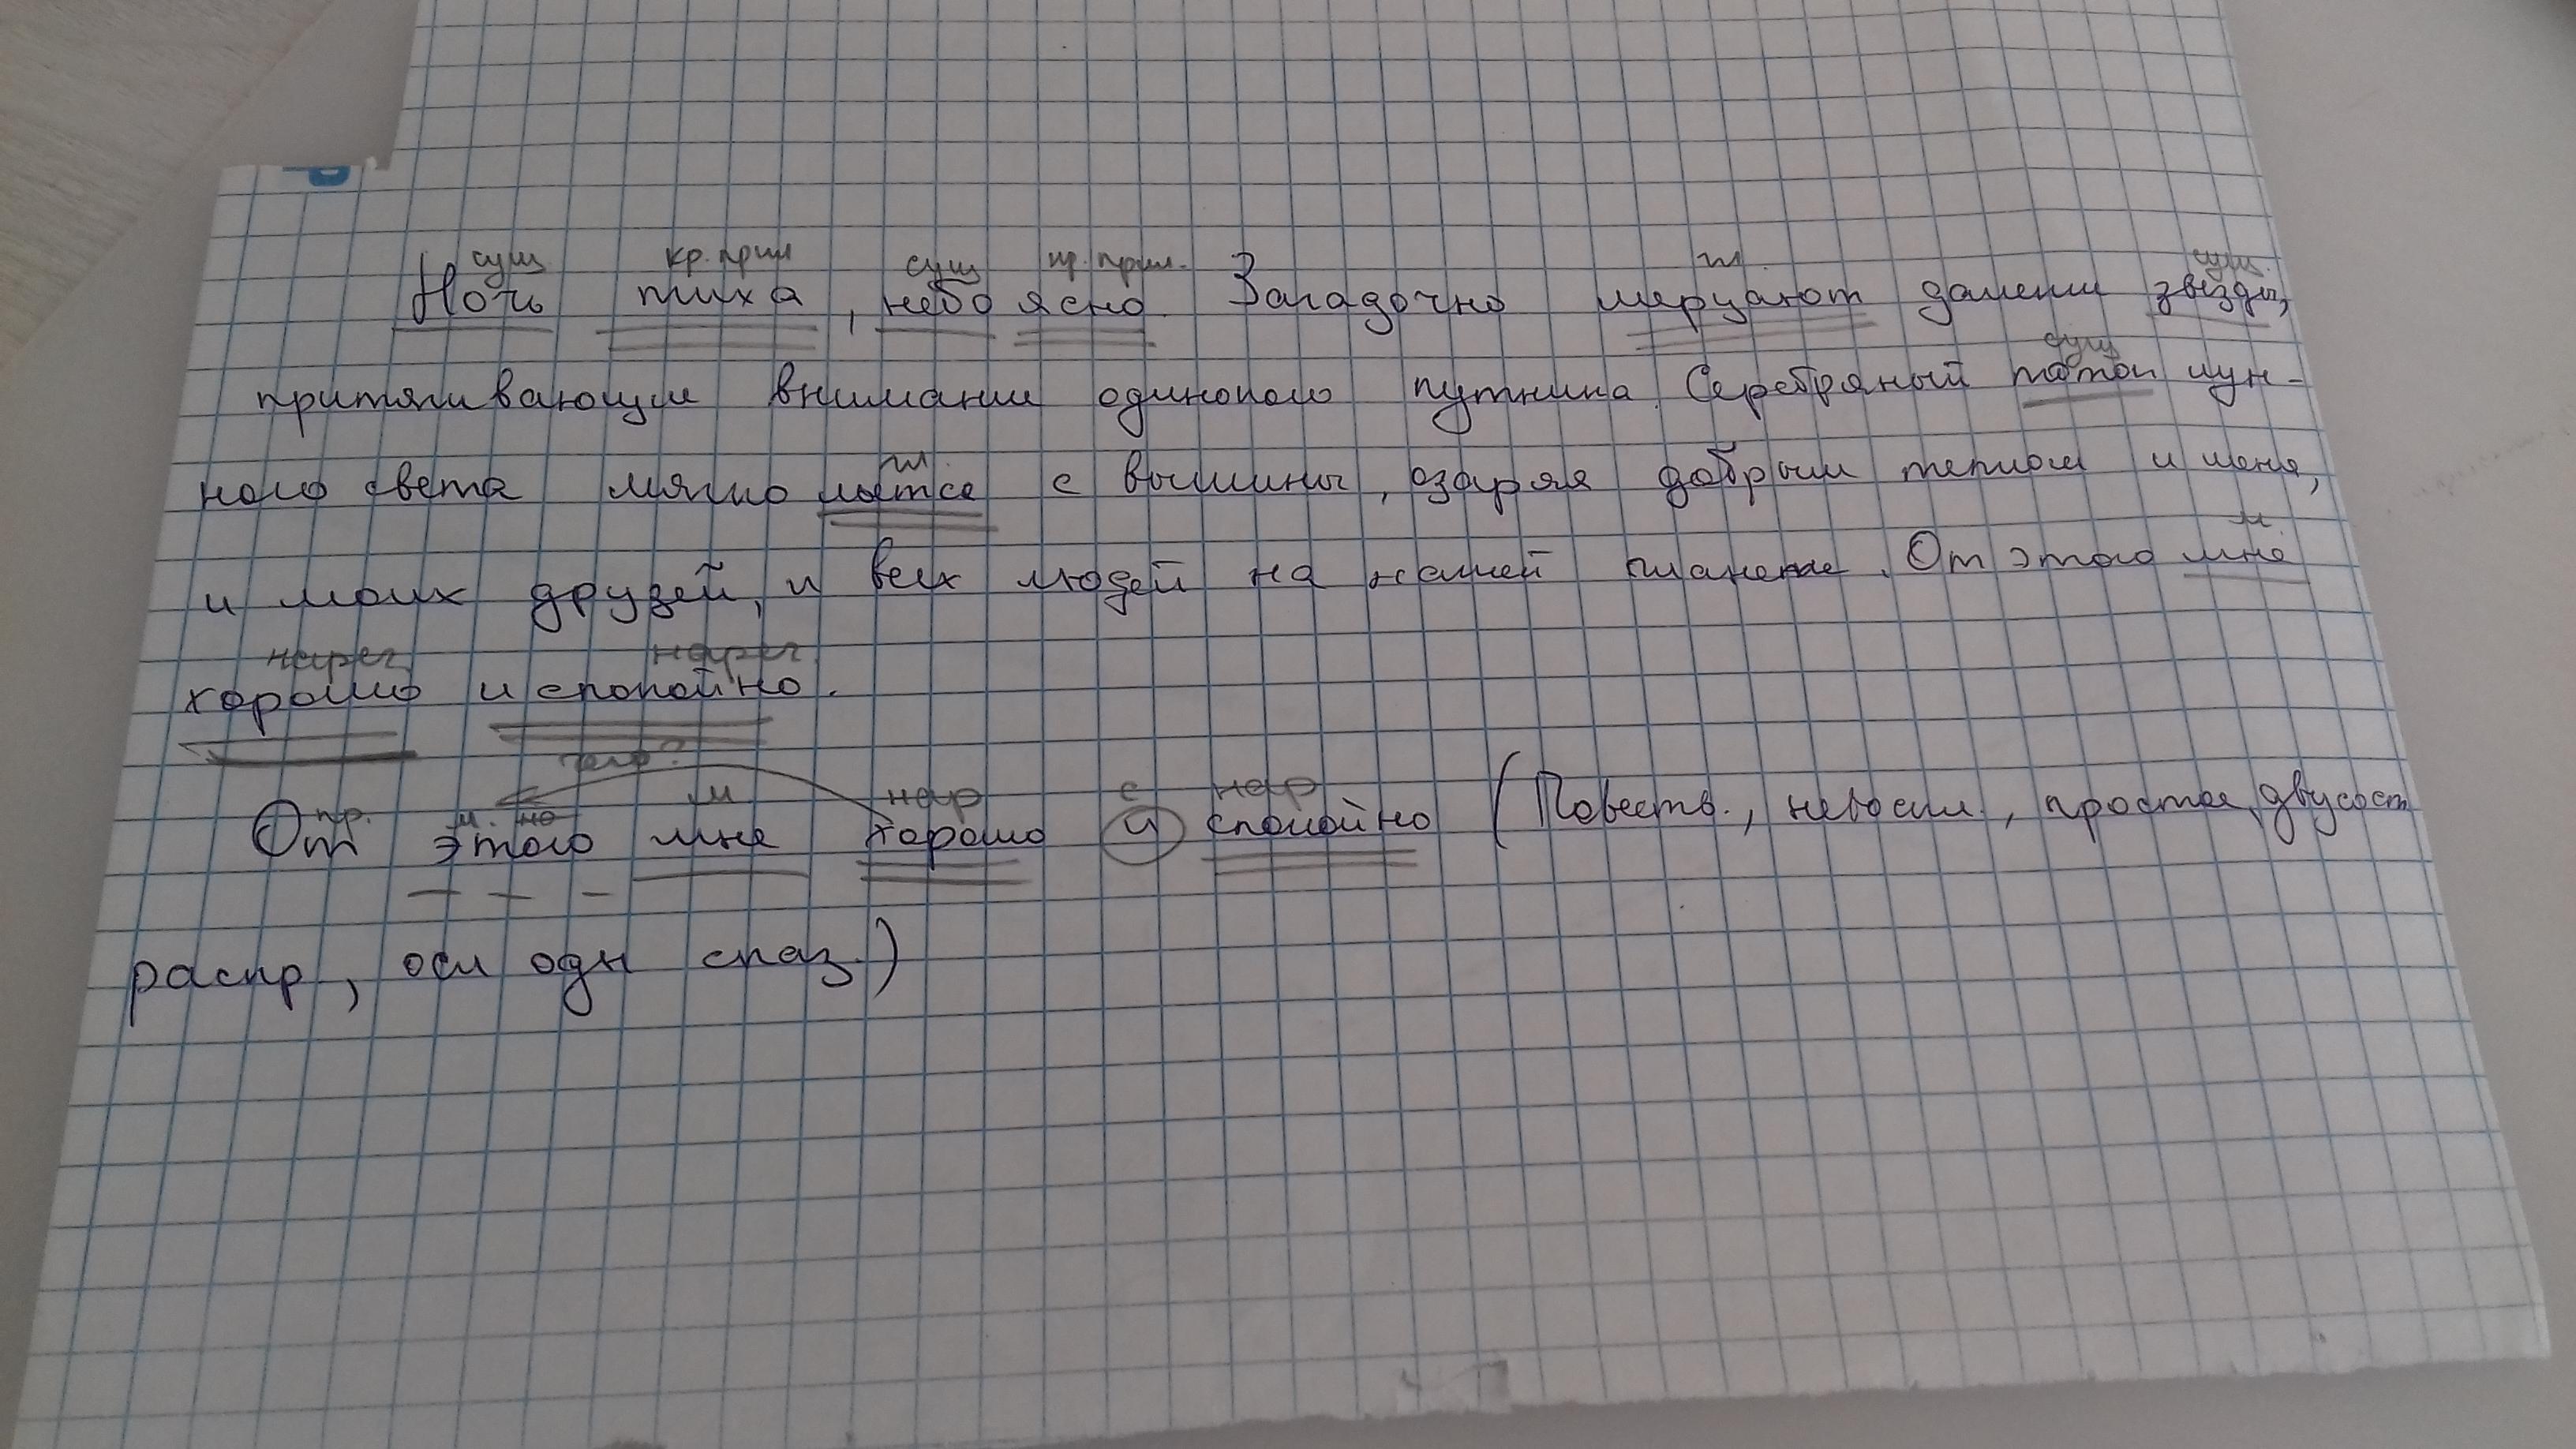 сущ кр. прил сущ кр. прил. гл. сущ.
Ночь тиха, небо ясно. Загадочно мерцают далекие звезды,
сущ
притягивающие внимание одинокого путника. Серебряный поток лун-
гл.
ного света мягко льется с вышины, озаряя добрым теплом и меня,
м.
и моих друзей, и всех людей на нашей планете. От этого мне
нареч. нареч.
хорошо и спокойно.
чего?
пр. м. м. нар с нар
От этого мне хорошо и спокойно (Повеств., невоскл., простое, двусост
распр., осл одн сказ.)